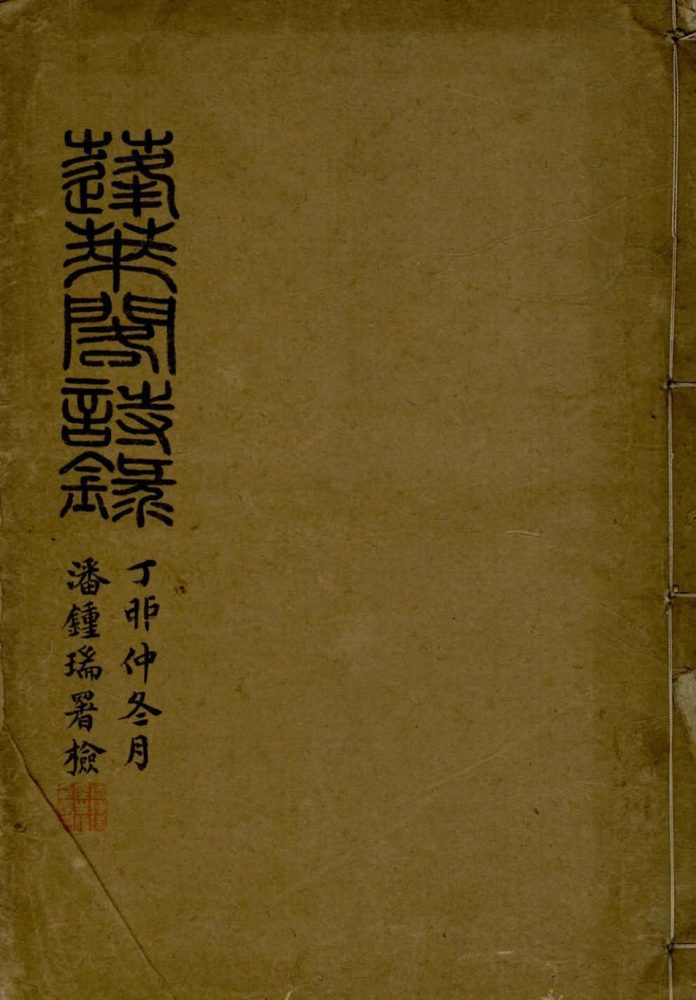 蓬萊閣詩錄
丁卯仲冬月
潘鍾瑞署檢